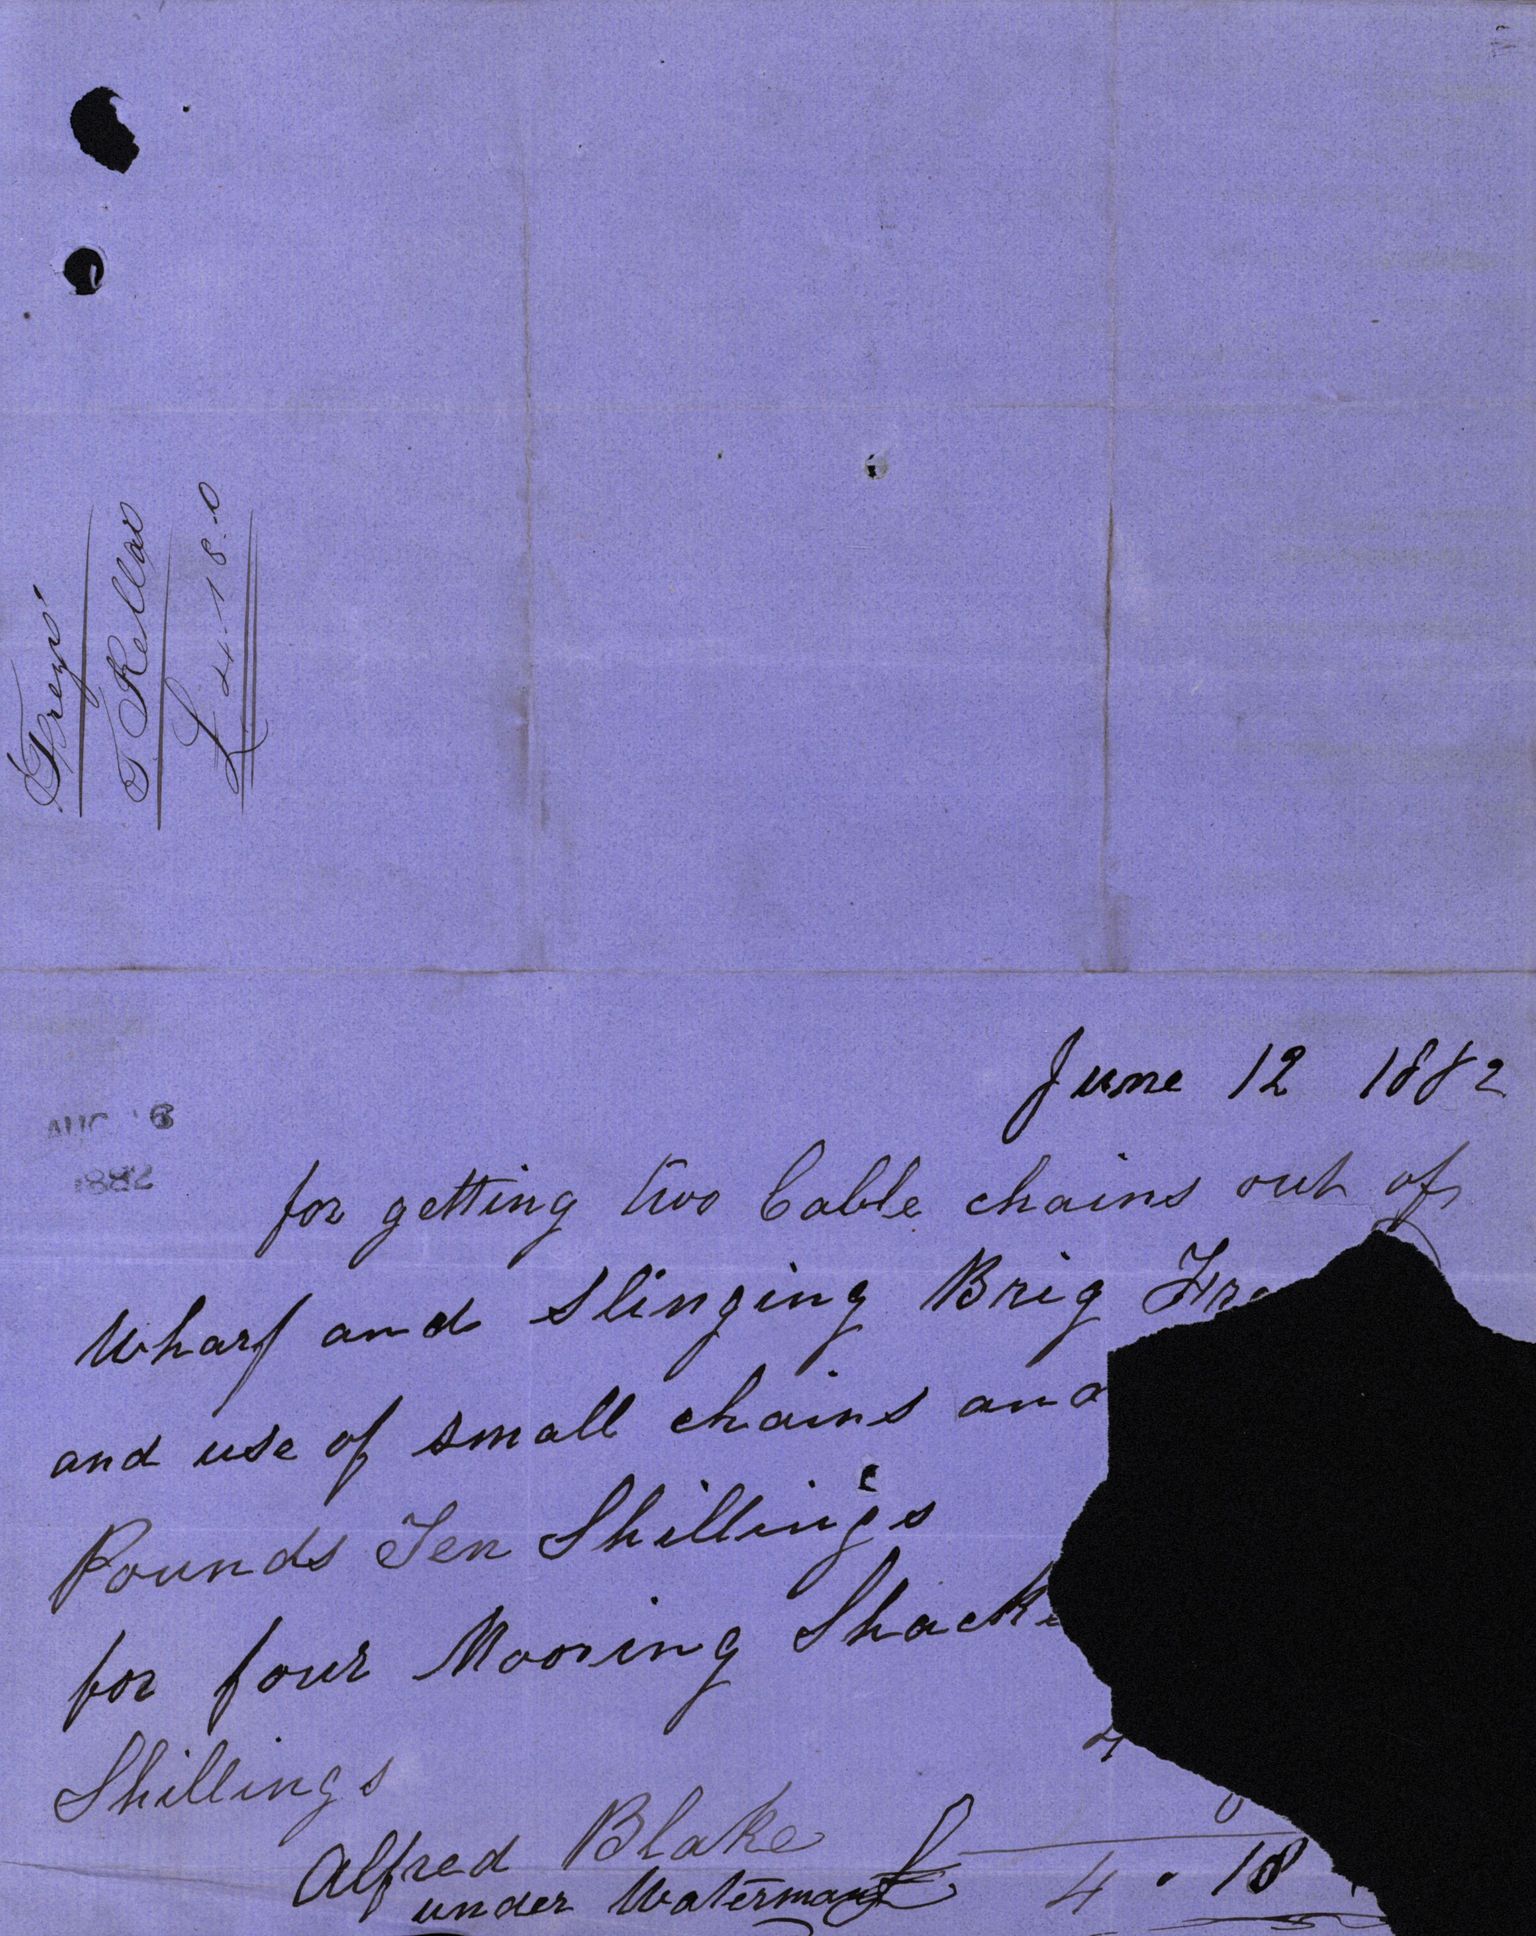 "Freyr"
T. Kellar
£ 4-18-0
June 12 1882
AUG 6
1882
for getting two Cable chains out of
Wharf and slinging Brig Fr
and use of small chains and
Pounds Ten Shillings
for four Mooring Shackl
Shillings
Alfred Blake
under Waterman
£ 4 . 18